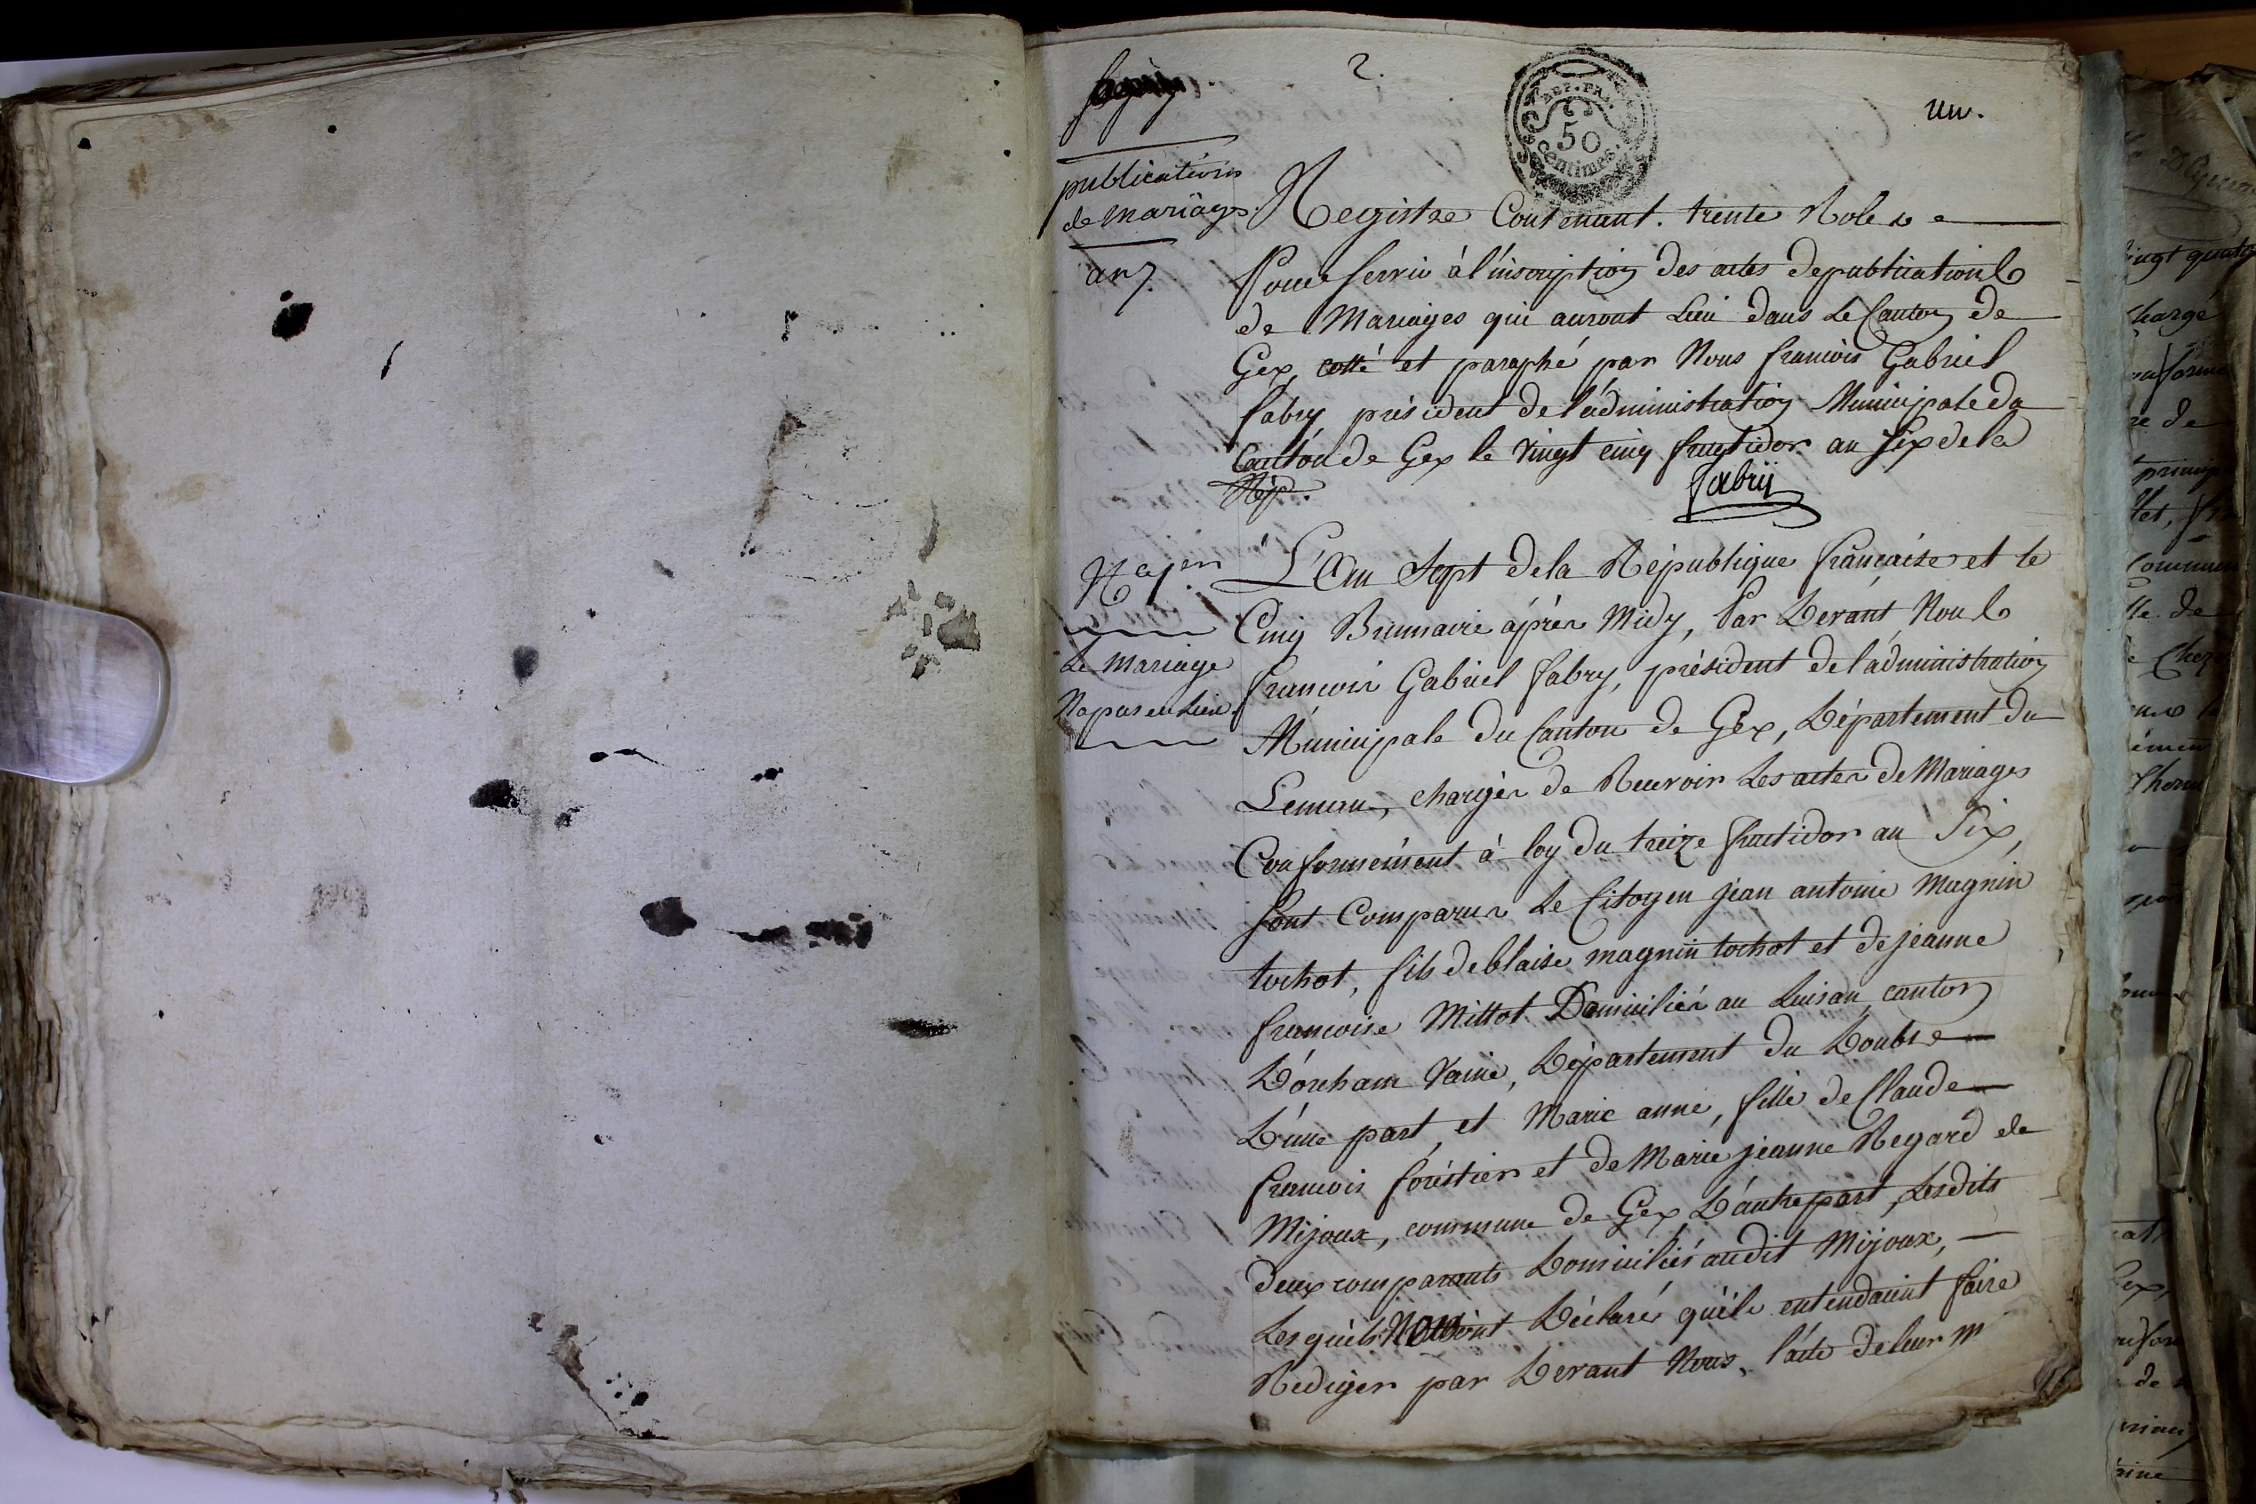 2.
un.
REP. FRA.
50
Centimes
publications
de mariages
an 7.
Registre Contenant trente Roles
Pour servir à l'inscription des actes de publications
de Mariages qui auront Lieu dans Le Canton de
Gex, cotté et paraphé par Nous francois Gabriel
fabry président de l'administration Municipale du
Canton de Gex le Vingt cinq fructidor an six de la
Rép.
fabrÿ
Le Mariage
Na pas eu Lieu.
L'An Sept de la République française et le
Cinq Brumaire après Midy, Par Devant Nous
francois Gabriel fabry, président de l'administration
Municipale du Canton de Gex, Département du
Leman, chargés de Recevoir Les actes de Mariages
Conformément à loy du treize fructidor an Six,
sont Comparus Le Citoyen jean antoine Magnin
tochot, fils de blaise magnin tochot et de jeanne
francoise Mittot Domiciliés au Luisan canton
D'orcham Vaine, Département du Doubs
D'une part, et Marie anne, fille de Claude
francois forêstier et de Marie jeanne Regard de
Mijoux, commune de Gex D'autre part, Lesdits
Deux comparants Domiciliés audit Mijoux,
Lesquels Nous ont Déclarés qu'ils entendaient faire
Rediger par Devant Nous, l'acte de leur m